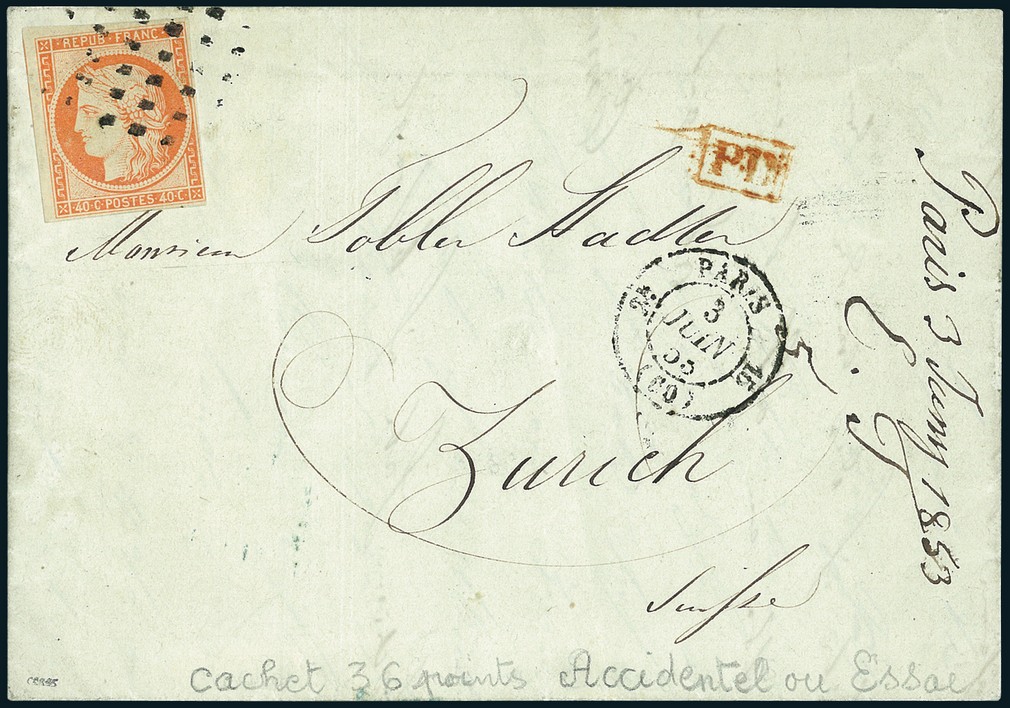 REPUB. FRANC.
40·C·POSTES·40·C·
PD
Monsieur Tobler Stadler
PARIS
3
JUIN
53
(60)
15
Zurich
Suisse
Paris 3 Juny 1853
cachet 36 points Accidentel ou Essai